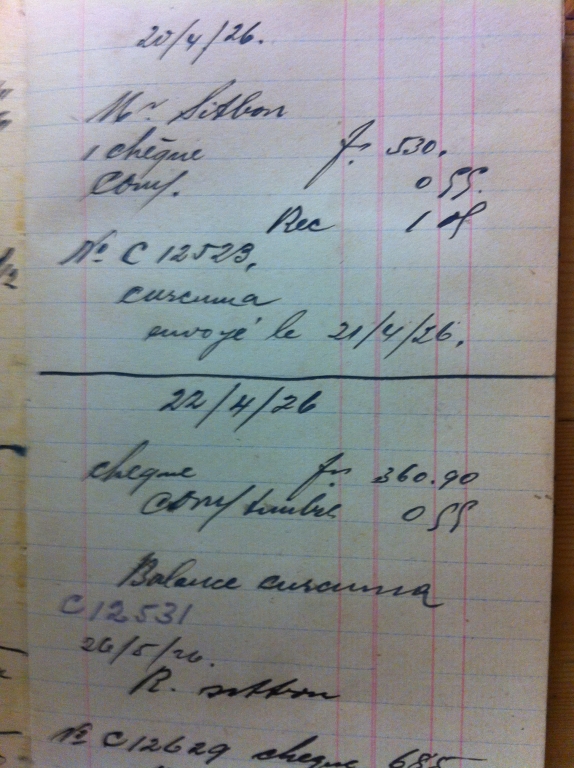 20/4/26.
Mr Sitbon
1 chèque fr 530.
Com. 0 55.
Rec 1 05
No C 12523.
curcuma
envoyé le 21/4/26.
22/4/26
cheque frs 360.90
com/timbre 0 55
Balance curcuma
C 12531
26/5/26.
R. sitbon
No C12629 cheque 685